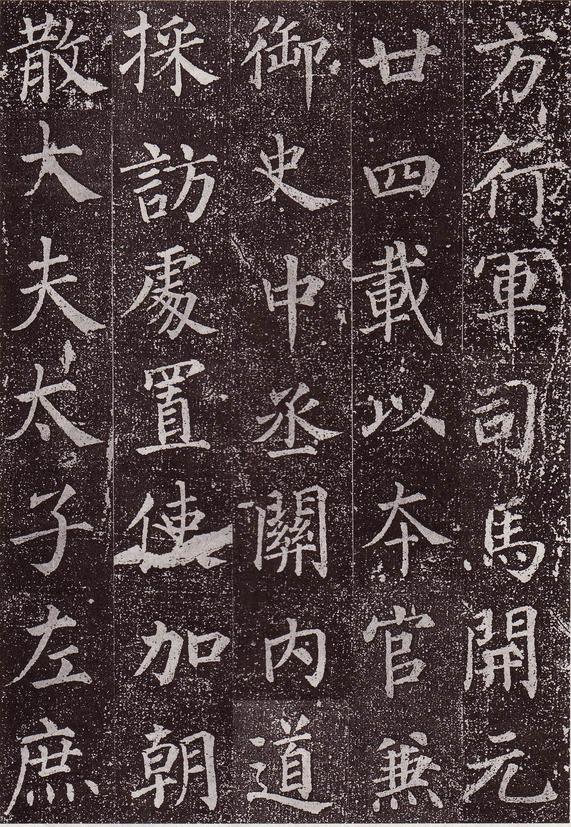 方行軍司馬開元
廿四載以本官兼
御史中丞關内道
採訪處置使加朝
散大夫太子左庶